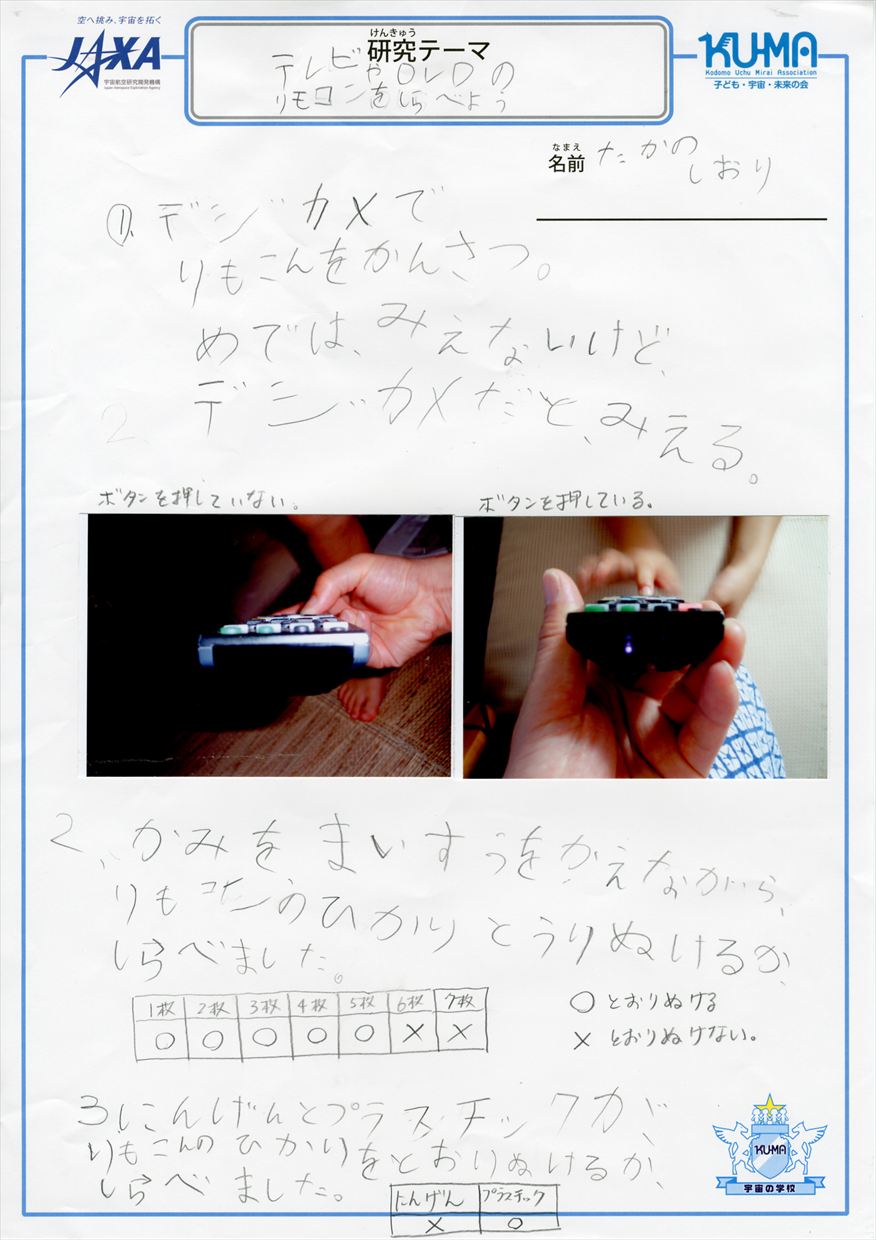 空へ挑み、宇宙を拓く
JAXA
宇宙航空研究開発機構
Japan Aerospace Exploration Agency
けんきゅう
研究テーマ
テレビやDVDの
リモコンをしらべよう
KU-MA
Kodomo Uchu Mirai Association
子ども・宇宙・未来の会
なまえ
名前 たかの
しおり
①、デジカメで
りもこんをかんさつ。
めでは、みえないけど、
デジカメだと、みえる。
2、
ボタンを押していない。
ボタンを押している。
2、かみをまいすうをかえながら、
りもコンのひかりとうりぬけるか、
しらべました。
1枚 2枚 3枚 4枚 5枚 6枚 7枚
○ ○ ○ ○ ○ × ×
○ とおりぬける
× とおりぬけない。
3、にんげんとプラスチックが、
りもこんのひかりをとおりぬけるか、
しらべました。
にんげん プラスチック
× ○
KU-MA
宇宙の学校